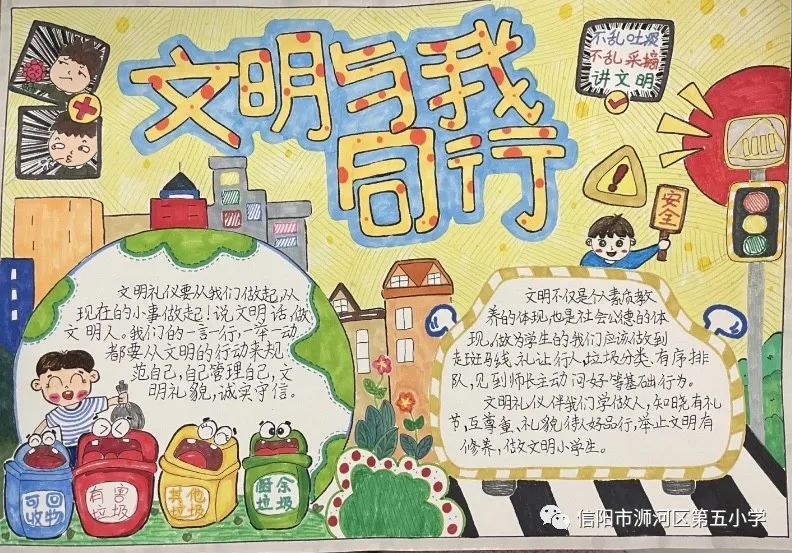 文明与我
同行
不乱吐痰
不乱采摘
讲文明
安全
文明礼仪要从我们做起,从
现在的小事做起!说文明话,做
文明人。我们的一言一行,一举一动
都要从文明的行动来规
范自己,自己管理自己,文
明礼貌,诚实守信。
文明不仅是个人素质教
养的体现,也是社会公德的体
现,做为学生的我们应该做到
走斑马线、礼让行人、垃圾分类、有序排
队,见到师长主动问好等基础行为。
文明礼仪伴我们学做人,知晓有礼
节,互尊重、礼貌待人好品行,举止文明有
修养,做文明小学生。
可回
收物
有害
垃圾
其他
垃圾
厨余
垃圾
信阳市浉河区第五小学